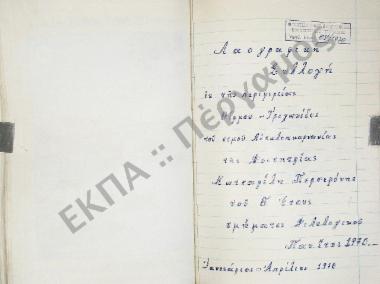 Λαογραφική
Συλλογή
ἐκ τῆς περιφερείας
Θέρμου - Τριχωνίδος
τοῦ νομοῦ Αἰτωλοακαρνανίας
τῆς Φοιτητρίας
Περσεφόνης
τοῦ Β' Ἔτους
τμήματος Φιλολογικοῦ
Παν. Ἔτος 1970.-
Ἰανουάριος - Ἀπρίλιος 1970
ΕΚΠΑ :: Πέργαμος